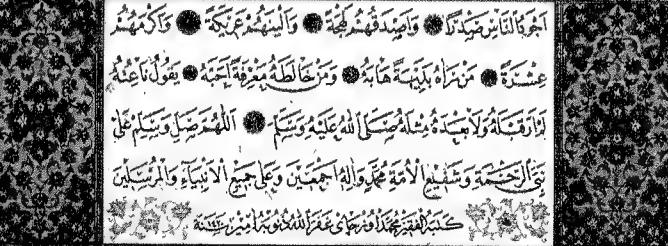 اَجْوَدُ النَّاسِ صَدْرًا وَاَصْدَقُهُمْ لَهْجَةً وَاَلْيَنُهُمْ عَرِيكَةً وَاَكْرَمُهُمْ
عِشْرَةً مَنْ رَاٰهُ بَدِيهَةً هَابَهُ وَمَنْ خَالَطَهُ مَعْرِفَةً اَحَبَّهُ يَقُولُ نَاعِتُهُ
لَمْ اَرَ قَبْلَهُ وَلَا بَعْدَهُ مِثْلَهُ صَلَّى اللّٰهُ عَلَيْهِ وَسَلَّمَ اَللّٰهُمَّ صَلِّ وَسَلِّمْ عَلٰى
نَبِىِّ الرَّحْمَةِ وَشَفِيعِ الْاُمَّةِ مُحَمَّدٍ وَاٰلِهِ اَجْمَعِينَ وَعَلٰى جَمِيعِ الْاَنْبِيَاءِ وَالْمُرْسَلِينَ
كتبه الفقير محمد اونرجاى غفر الله ذنوبه امين سنة